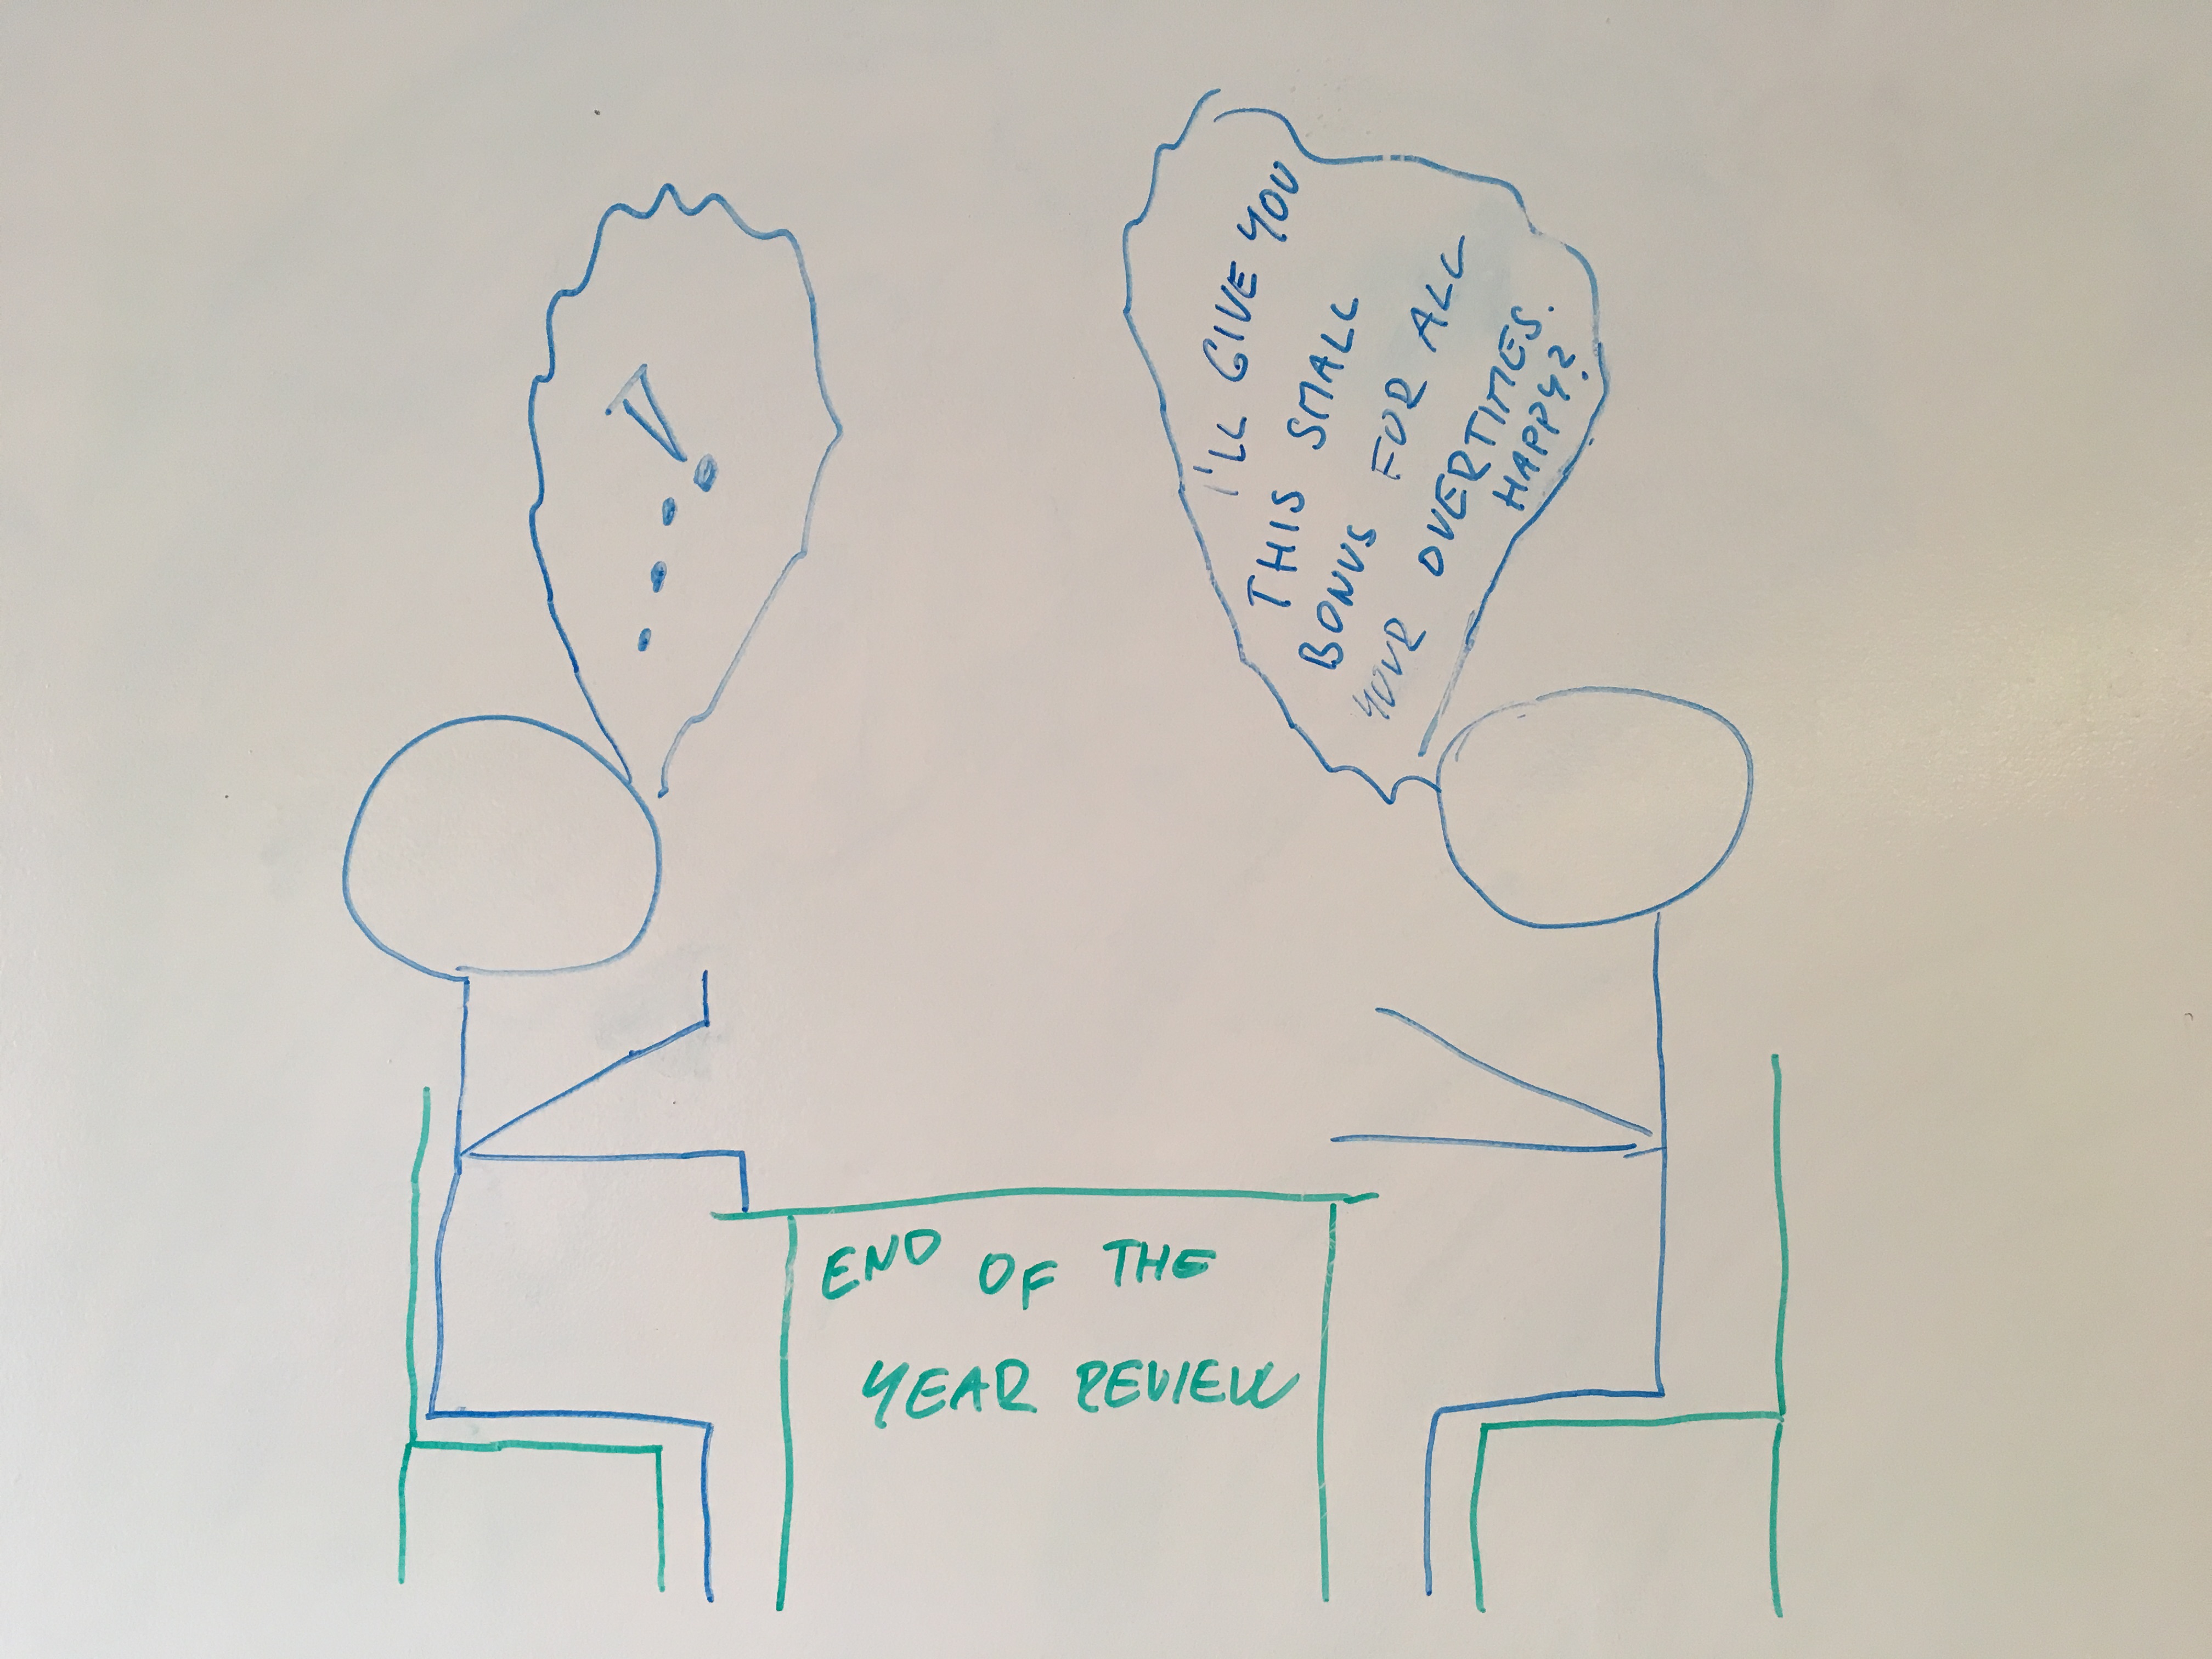 ...!
I'LL GIVE YOU
THIS SMALL
BONUS FOR ALL
YOUR OVERTIMES.
HAPPY?
END OF THE
YEAR REVIEW